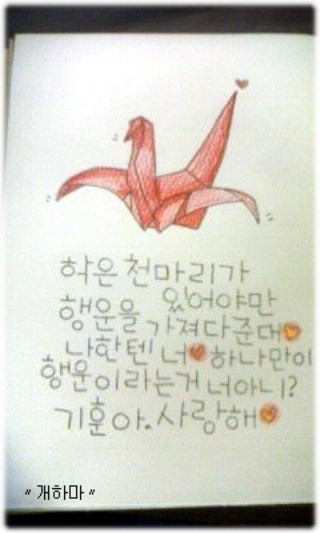 학은 천마리가
행운을 있어야만
가져다준대
나한텐 너 하나만이
행운이라는거 너아니?
기훈아. 사랑해
" 개하마 "